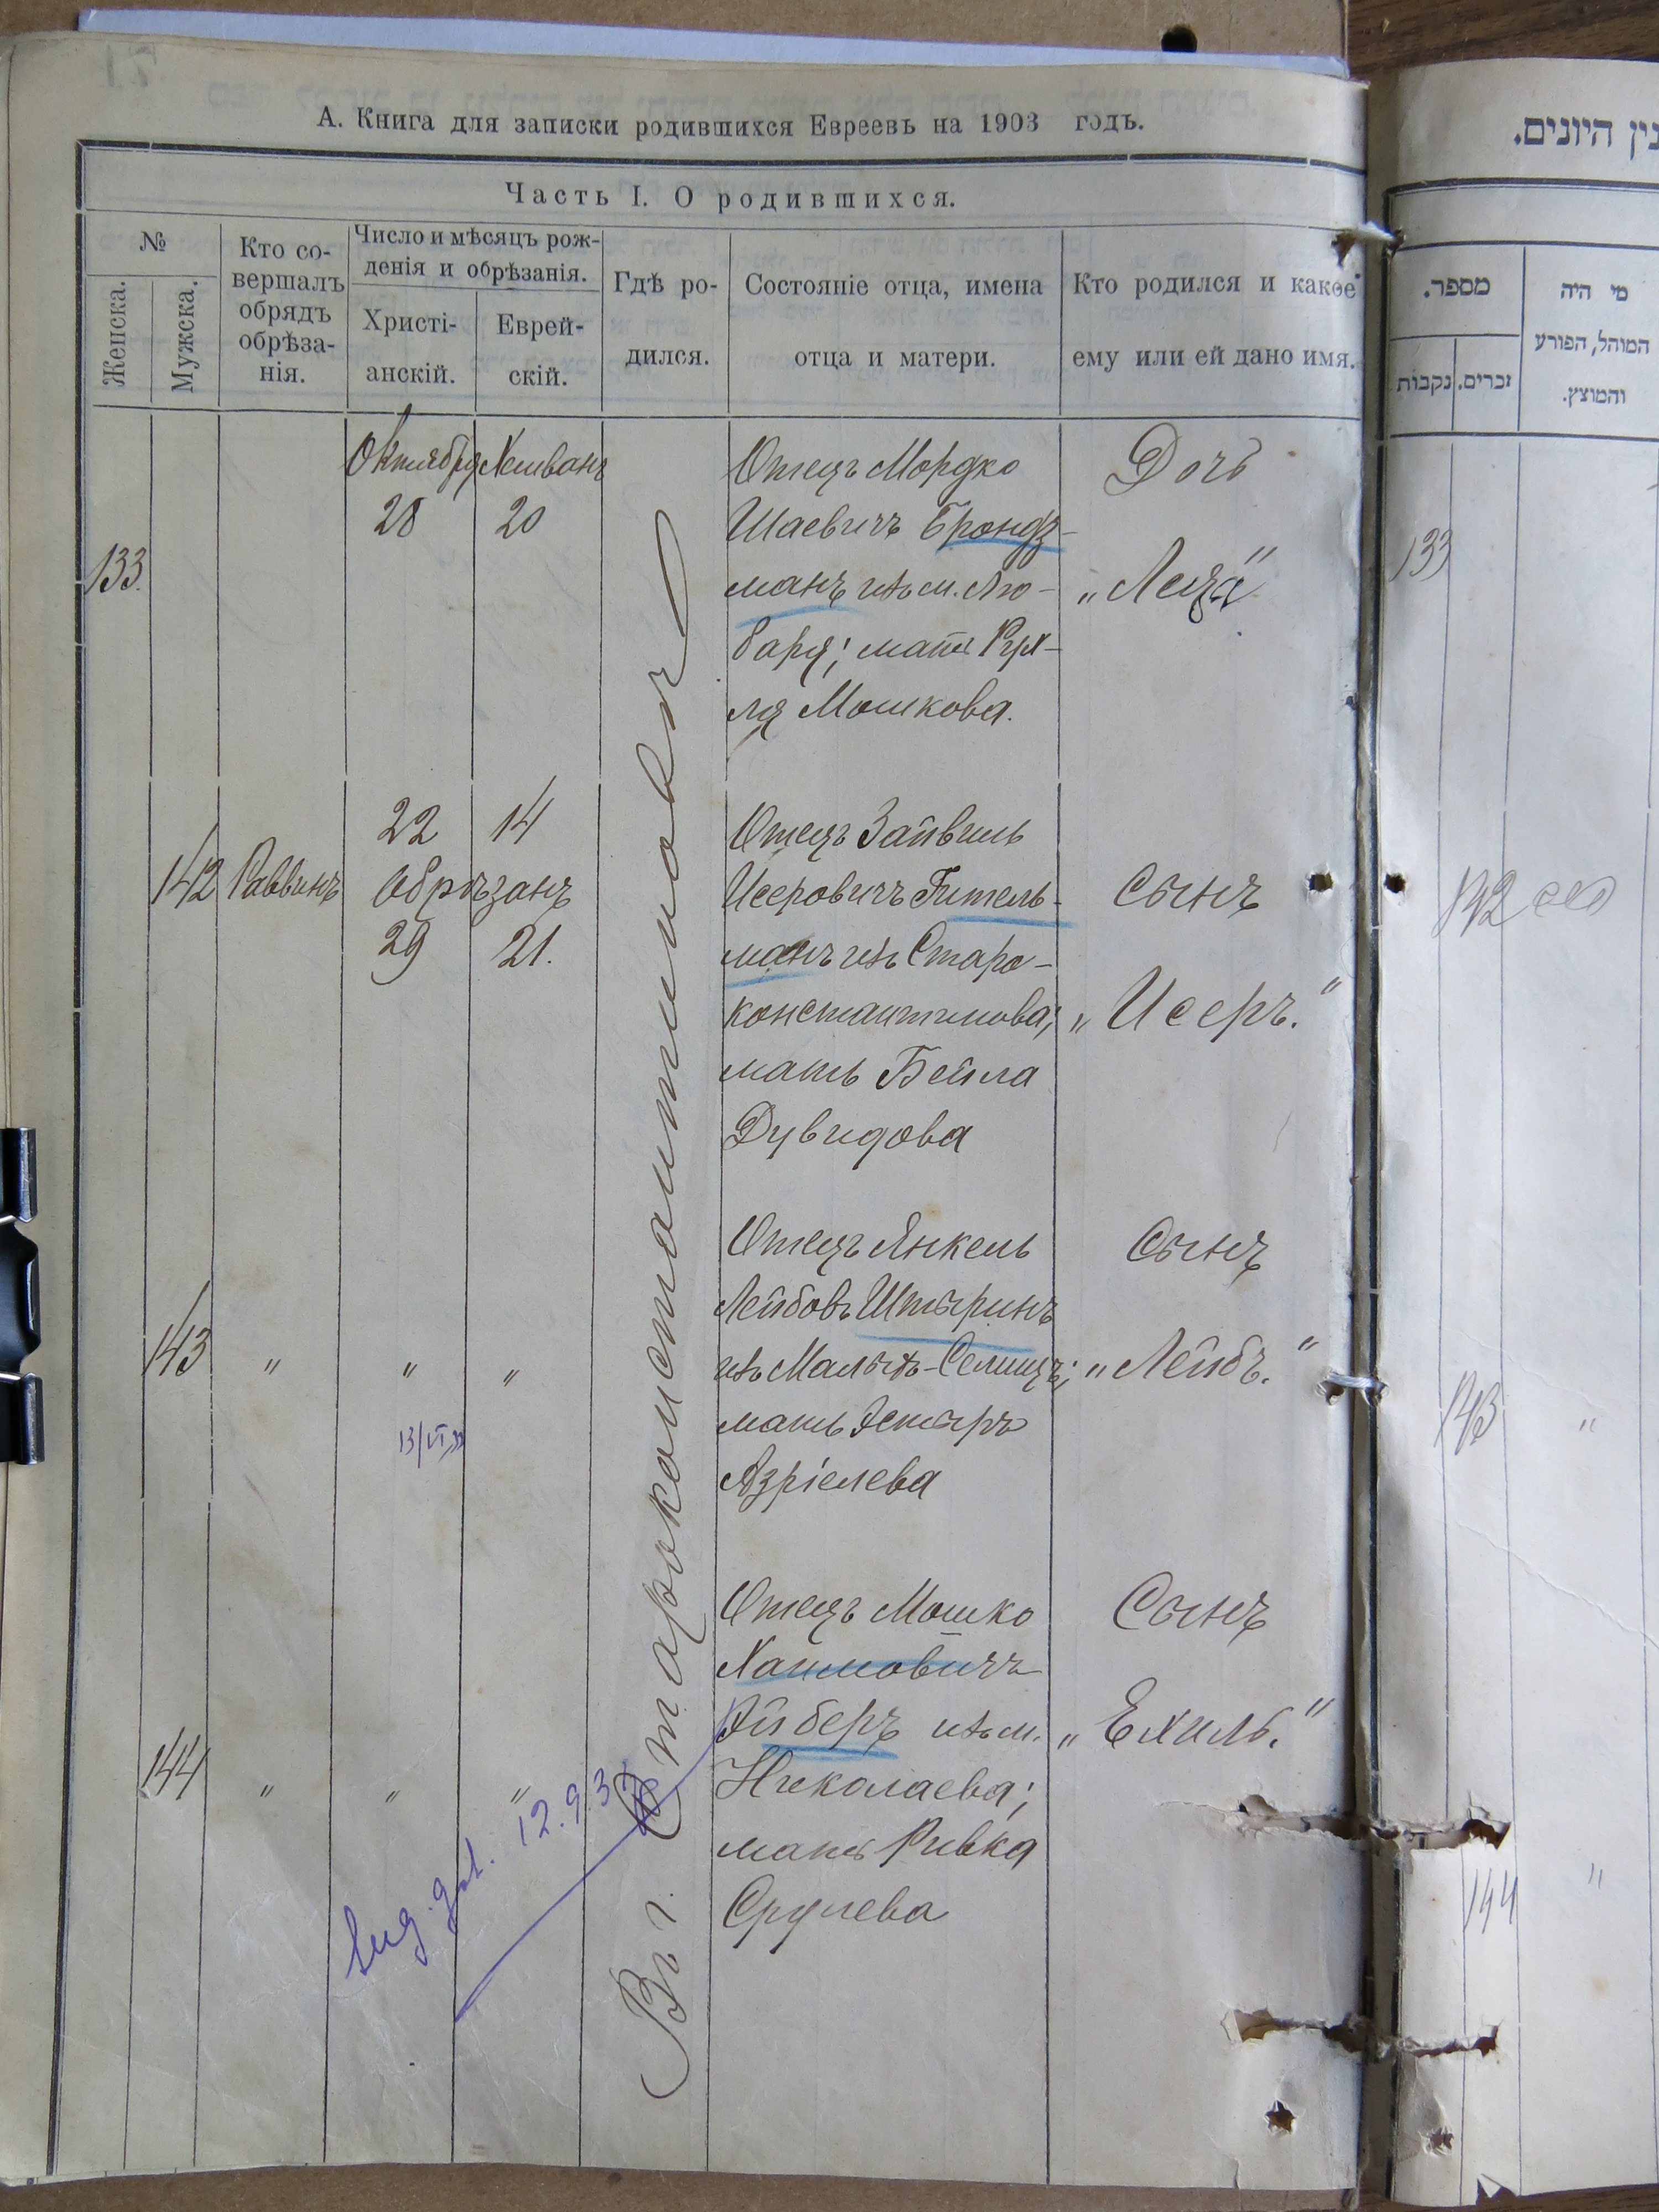 А. Книга для записки родившихся Евреевъ на 1903 годъ.
Часть I. О родившихся.
№
Женска.
Мужска.
Кто со-
вершалъ
обрядъ
обрѣза-
нія.
Число и мѣсяцъ рож-
денія и обрѣзанія.
Христі-
анскій.
Еврей-
скій.
Гдѣ ро-
дился.
Состояніе отца, имена
отца и матери.
Кто родился и какое
ему или ей дано имя.
Въ г. Староконстантиновѣ
133.
Октября Хешванъ
28 20
Отецъ Мордко
Шаевичъ Брондз-
манъ изъ м. Лю-
баря; мать Рух-
ля Мошкова.
Дочь
„Леца“
142 Раввинъ
22 14
обрѣзанъ
29 21.
Отецъ Зайвиль
Исеровичъ Гитель-
манъ изъ Старо-
константинова;
мать Бейла
Дувидова
Сынъ
„Исеръ.“
143 " " "
13/VI
Отецъ Янкель
Лейбовъ Штыринъ
изъ Малыхъ-Селищъ;
мать Эстыръ
Азріелева
Сынъ
„Лейбъ.“
144 " " "
12.9.3
Отецъ Мошко
Хаимовичъ
Фйберъ изъ м.
Николаева;
мать Ривка
Срулева
Сынъ
„Ехиль.“
נין היונים.
מספר.
נקבות
זכרים.
מי היה
המוהל, הפורע
והמוצץ.
133
142
143 "
144 "